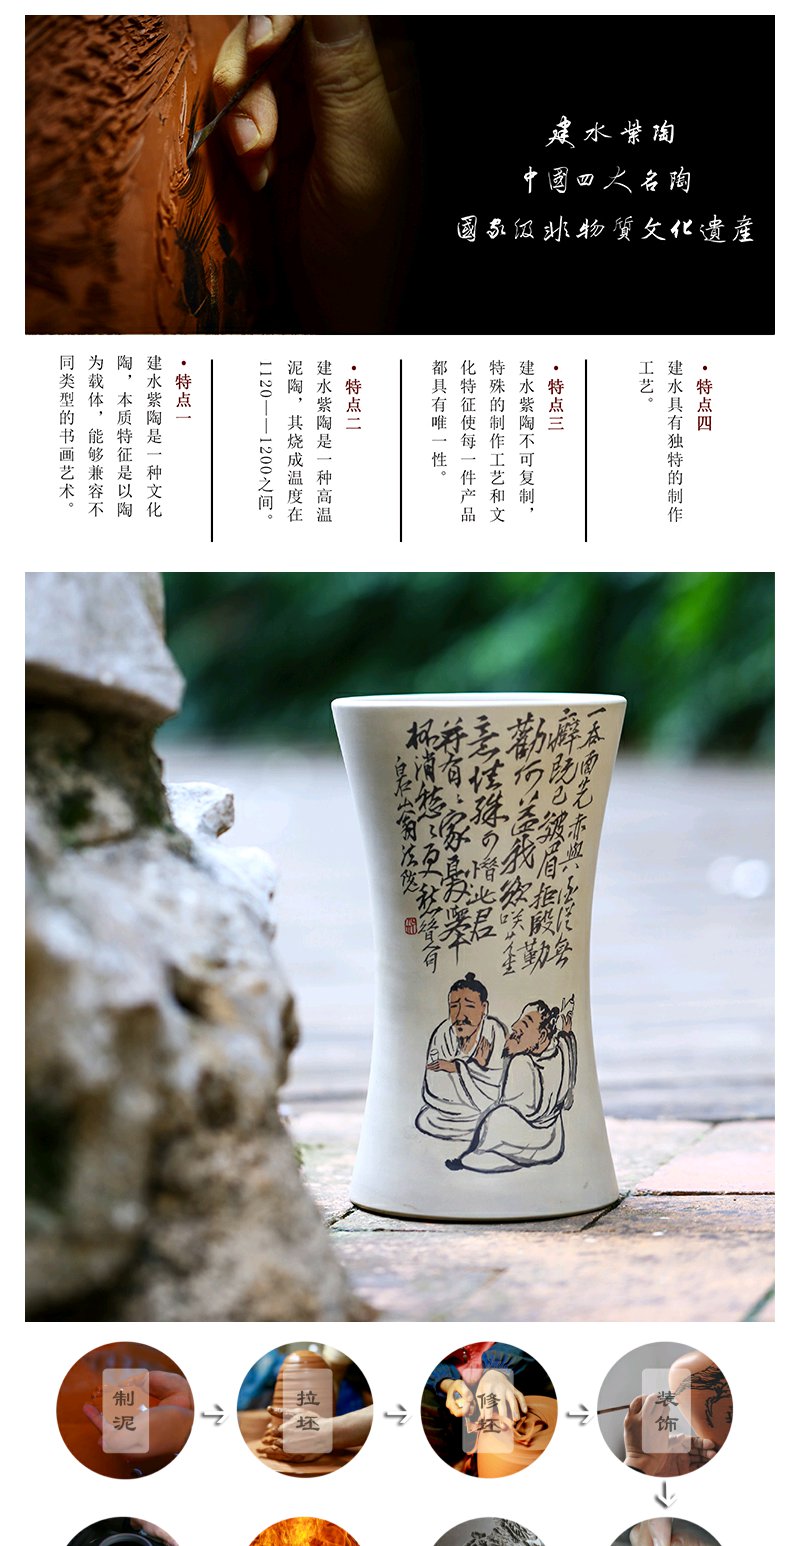 建水紫陶
中國四大名陶
國家级非物質文化遺産
•特点一
建水紫陶是一种文化
陶，本质特征是以陶
为载体，能够兼容不
同类型的书画艺术。
•特点二
建水紫陶是一种高温
泥陶，其烧成温度在
1120——1200之间。
•特点三
建水紫陶不可复制，
特殊的制作工艺和文
化特征使每一件产品
都具有唯一性。
•特点四
建水具有独特的制作
工艺。
癖既已皱眉拒殷勤
劝何益我欲咲
意情殊可惜此君
并有〻家
杯消愁〻更愁
白石山翁
制泥
拉坯
修坯
装饰